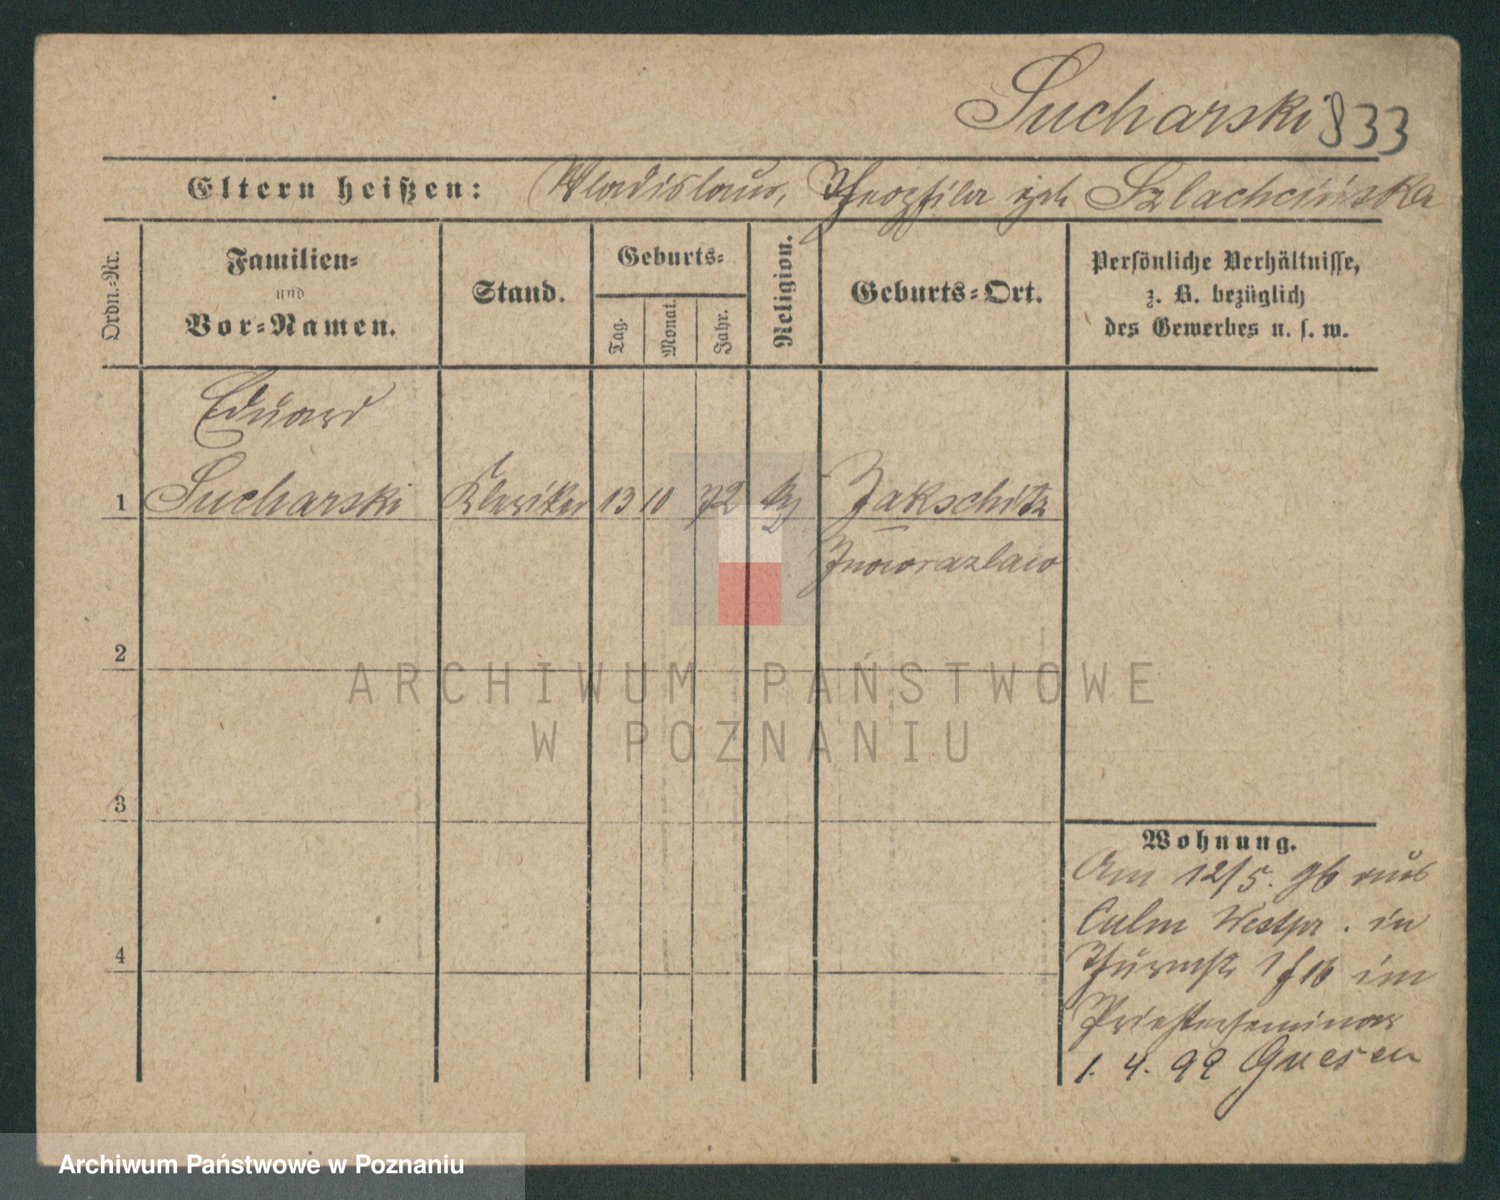 Sucharski 833
Eltern heißen: Wladislaus, Theophila geb Szlachcinska
Ordn.-Nr.
Familien-
und
Vor-Namen.
Stand.
Geburts-
Tag.
Monat.
Jahr.
Religion.
Geburts-Ort.
Persönliche Verhältnisse,
z. B. bezüglich
des Gewerbes u. s. w.
Eduard
1 Sucharski Kleriker 13 10 72 Jakschitz
Inowrazlaw
2
3
4
Wohnung.
Am 12/5. 96 aus
Culm Westpr. in
16 im
Priesterseminar
1. 4. 99 Gnesen
ARCHIWUM PAŃSTWOWE
W POZNANIU
Archiwum Państwowe w Poznaniu